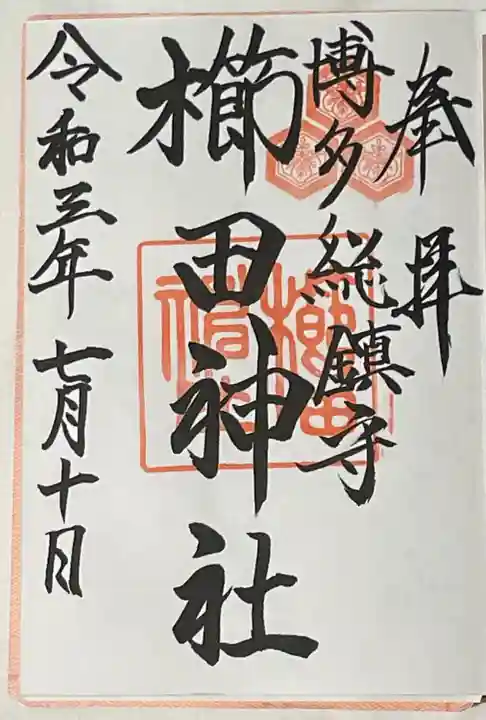 奉拝
博多総鎮守
櫛田神社
令和三年七月十日